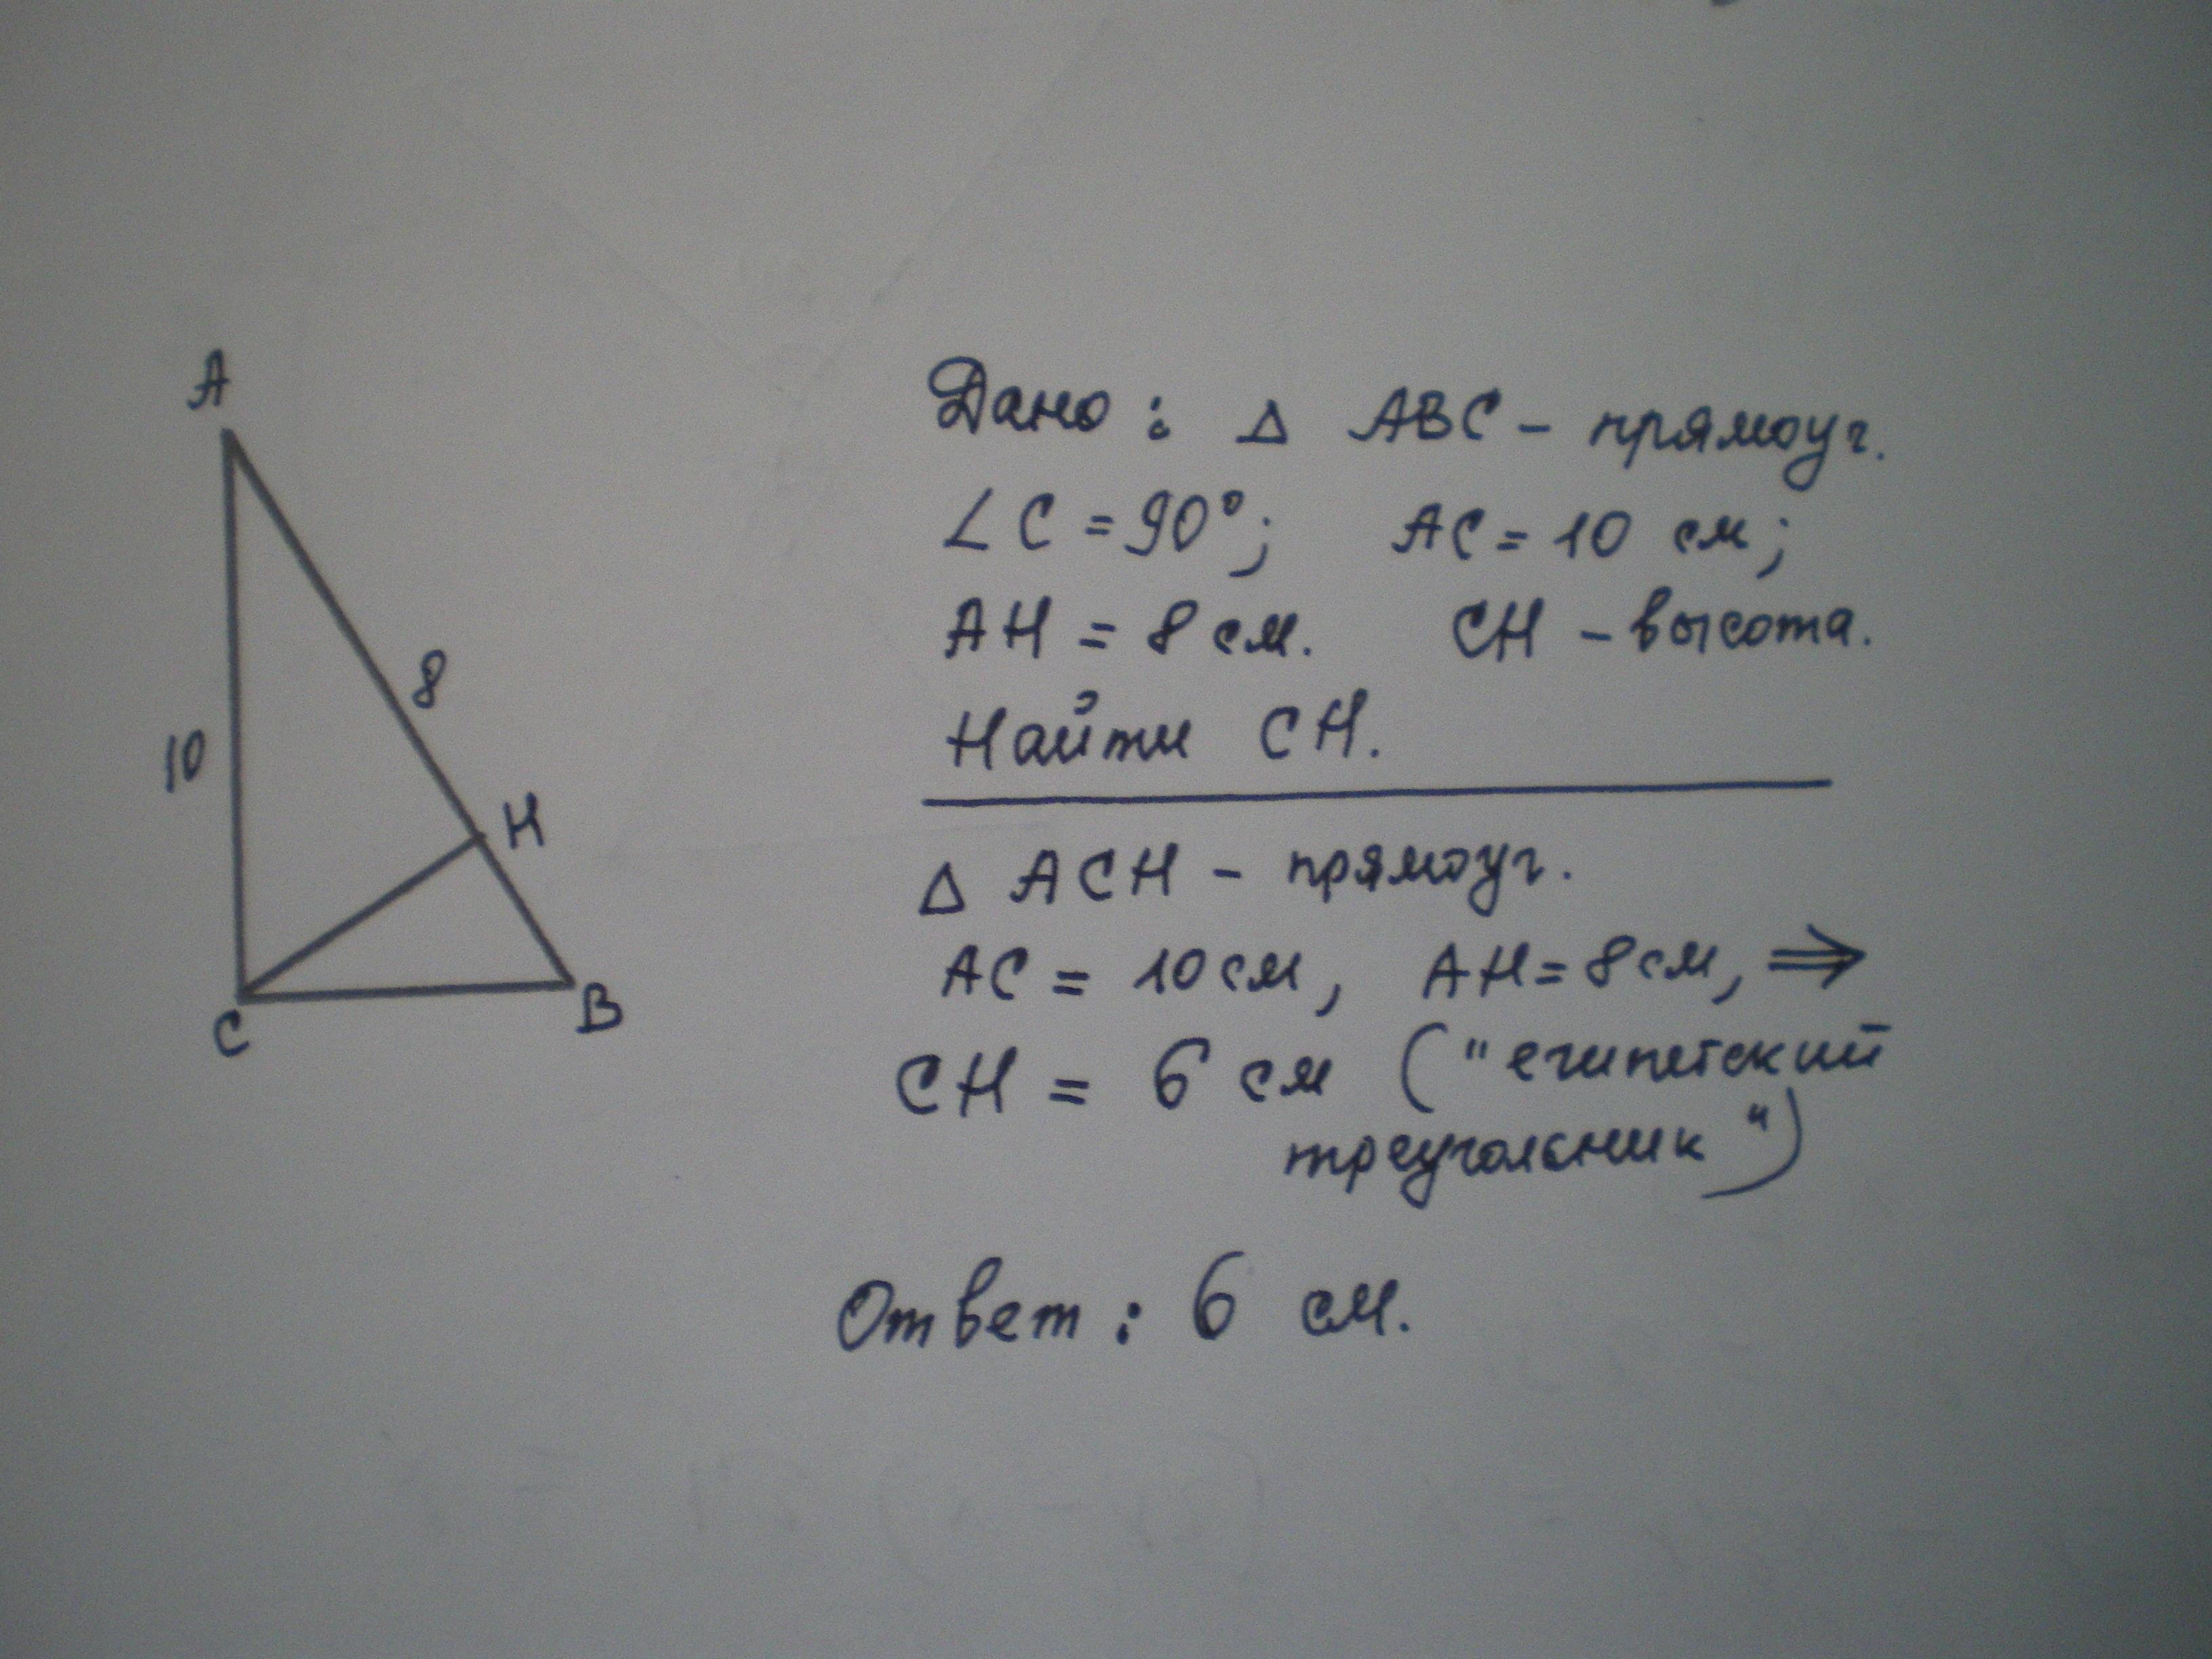 A
8
10
H
C
B
Дано: △ ABC - прямоуг.
∠C = 90°; AC = 10 см;
AH = 8 см. CH - высота.
Найти CH.
△ ACH - прямоуг.
AC = 10 см, AH = 8 см, ⇒
CH = 6 см ("египетский
треугольник")
Ответ: 6 см.